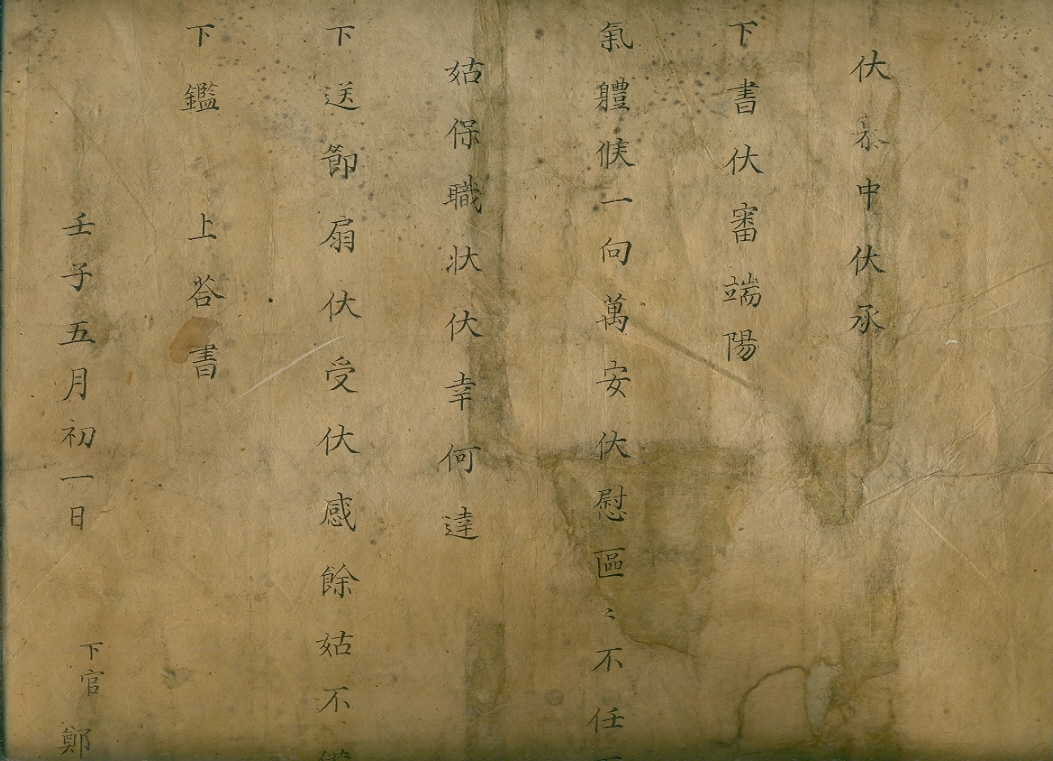 伏㳟中伏承
下書伏審端陽
氣軆候一向萬安伏慰區〻不任下
姑保職狀伏幸何達
下送節扇伏受伏感餘姑不備
下鑑 上答書
壬子五月初一日 下官 鄭